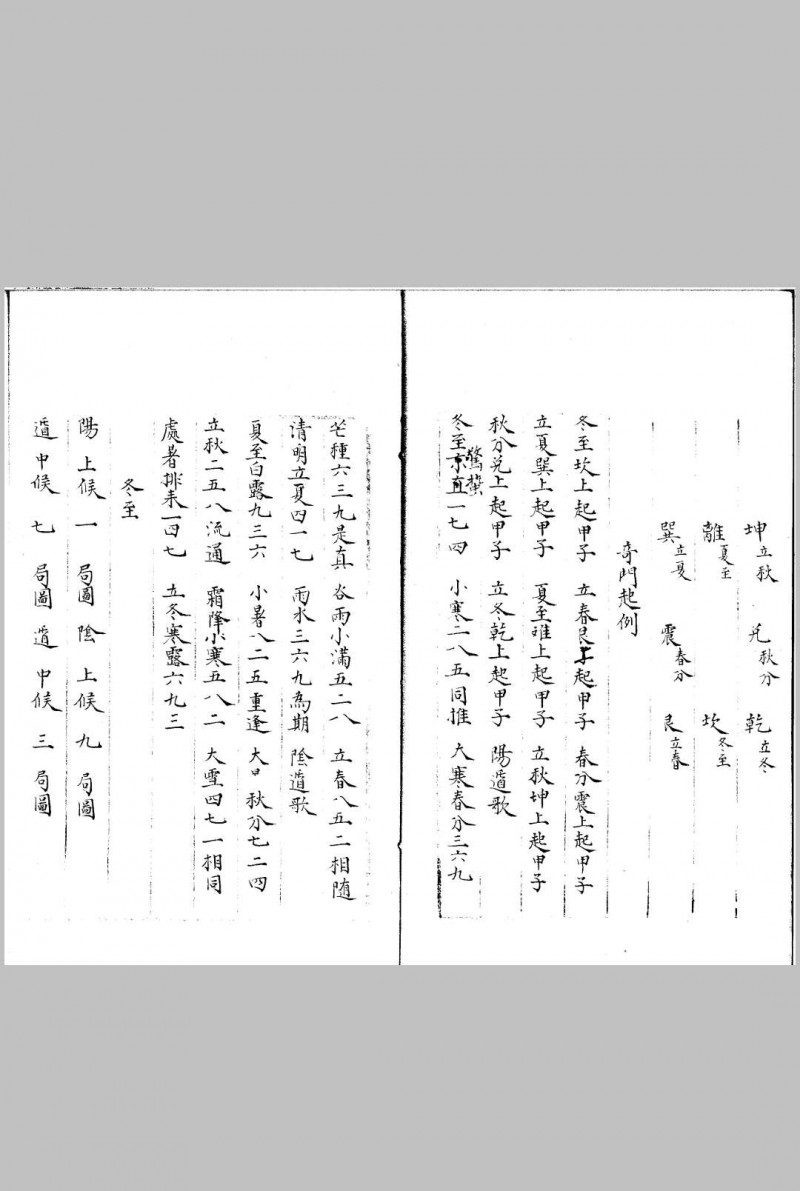 坤立秋 兑秋分 乾立冬
離夏至 坎冬至
巽立夏 震春分 艮立春
奇門起例
冬至坎上起甲子 立春艮上起甲子 春分震上起甲子
立夏巽上起甲子 夏至離上起甲子 立秋坤上起甲子
秋分兑上起甲子 立冬乾上起甲子 陽遁歌
冬至京直一七四 小寒二八五同推 大寒春分三六九
驚蟄
芒種六三九是真 谷雨小滿五二八 立春八五二相随
清明立夏四一七 雨水三六九為期 陰遁歌
夏至白露九三六 小暑八二五重逢 大口秋分七二四
立秋二五八流通 霜降小寒五八二 大雪四七一相同
處暑排来一四七 立冬寒露六九三
冬至
陽上候一局圖陰上候九局圖
遁中候七局圖遁中候三局圖